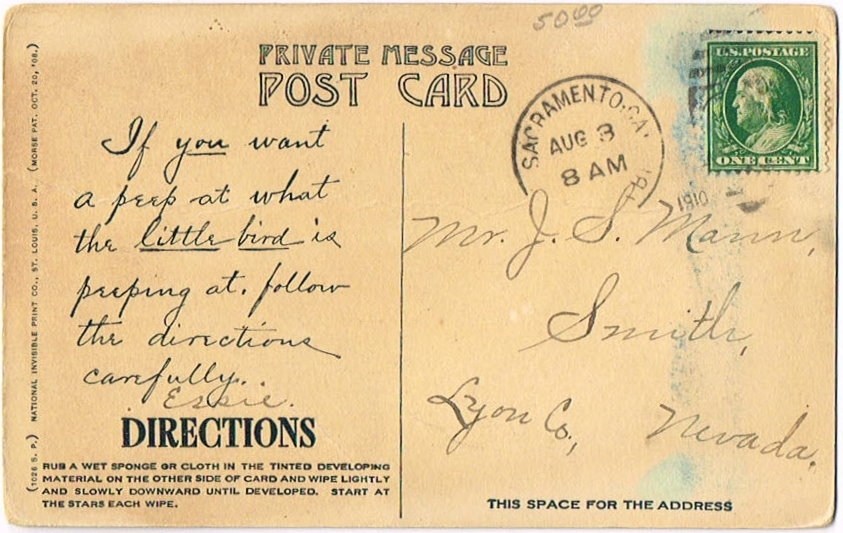 5000
PRIVATE MESSAGE
POST CARD
U.S. POSTAGE
ONE CENT
SACRAMENTO, CA
AUG 3
8 AM
1910
If you want
a peep at what
the little bird is
peeping at. follow
the directions
carefully.
Essie.
DIRECTIONS
RUB A WET SPONGE OR CLOTH IN THE TINTED DEVELOPING
MATERIAL ON THE OTHER SIDE OF CARD AND WIPE LIGHTLY
AND SLOWLY DOWNWARD UNTIL DEVELOPED. START AT
THE STARS EACH WIPE.
(1026 S. P.) NATIONAL INVISIBLE PRINT CO., ST. LOUIS, U. S. A. (MORSE PAT. OCT. 20, '08.)
Mr. J. S. Mann,
Smith,
Lyon Co., Nevada.
THIS SPACE FOR THE ADDRESS